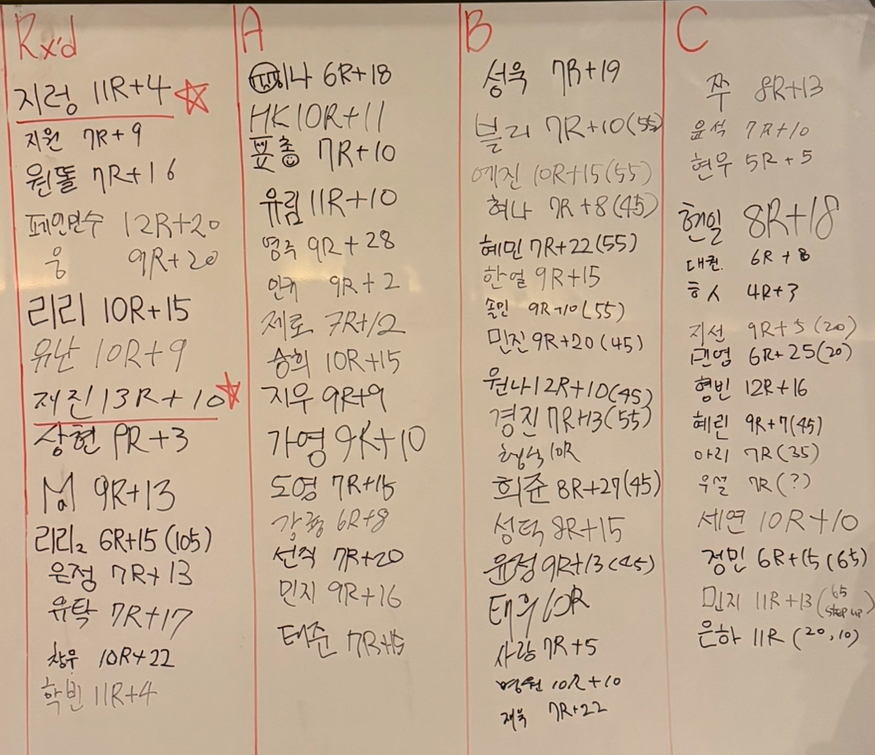 Rx'd
지렁 11R+4
지원 7R+9
원똘 7R+16
페인만수 12R+20
웅 9R+20
리리 10R+15
유난 10R+9
재진 13R+10
상현 9R+3
M 9R+13
리리2 6R+15(105)
은정 7R+13
유탁 7R+17
창우 10R+22
학빈 11R+4
A
6R+18
HK 10R+11
7R+10
유림 11R+10
영주 9R+28
9R+2
제로 7R+12
승희 10R+15
지우 9R+9
가영 9R+10
도영 7R+15
6R+8
선직 7R+20
민지 9R+16
태준 7R+15
B
성욱 7R+19
블리 7R+10(55)
예진 10R+15(55)
허나 7R+8(45)
혜민 7R+22(55)
한얼 9R+15
솔민 9R+10(55)
민진 9R+20(45)
원나 12R+10(45)
경진 7R+13(55)
10R
희준 8R+27(45)
성탁 8R+15
윤정 9R+13(45)
태우 10R
사랑 7R+5
명원 10R+10
재욱 7R+22
C
쭈 8R+13
윤석 7R+10
현우 5R+5
현일 8R+18
대권 6R+8
4R+3
지선 9R+5(20)
민영 6R+25(20)
형빈 12R+16
혜린 9R+7(45)
아리 7R(35)
우설 7R(?)
세연 10R+10
정민 6R+15(65)
민지 11R+13(65 step up)
은하 11R(20,10)